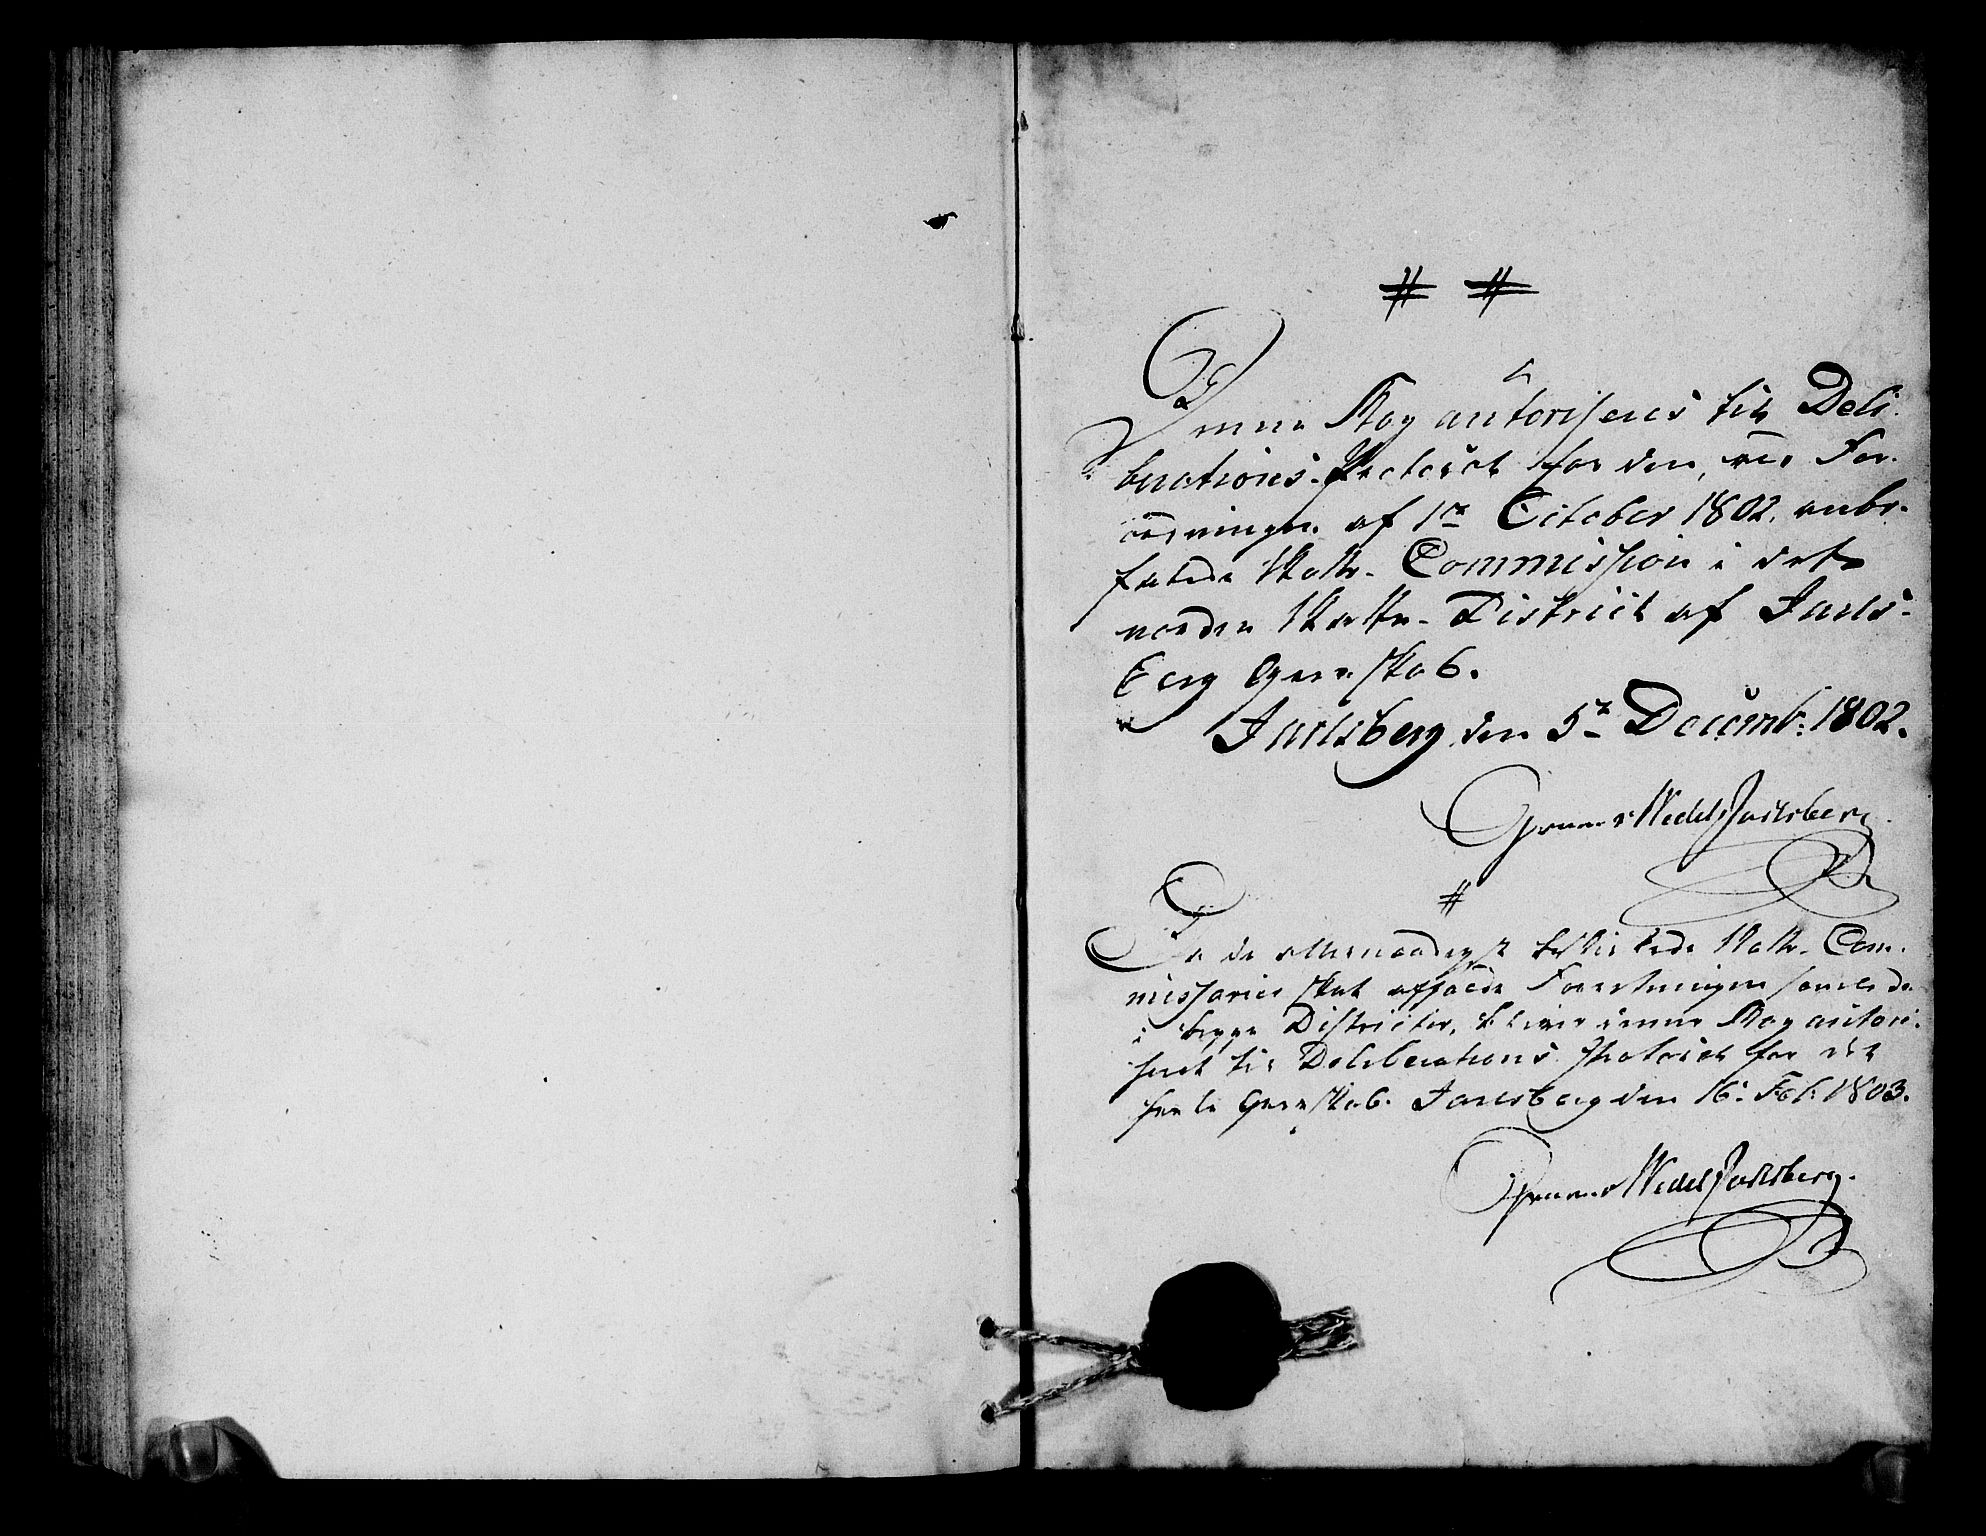 Denne Bog autoriseres til Deli-
berations-Protocol for den, ved For-
ordningen af 1te October 1802. anbe-
falede Skatte-Commission i det
nordre Skatte-District af Jarls-
berg Grevskab.
Jarlsberg den 5te Decemb: 1802.
Wedel Jarlsberg.
Da de allernaadigst beskikkede Skatte-Com-
missarier skal afgjøre Forretningen samlede
i begge Districter, bliver denne Bog autori-
seret til Deliberations Protocol for det
heele Grevskab. Jarlsberg den 16: Feb: 1803.
Wedel Jarlsberg.